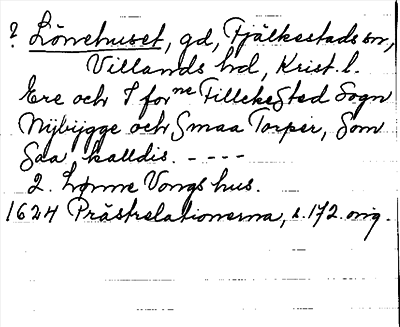 ? Lönehuset, gd, Fjälkestads sn,
Villands hd, Krist. l.
Ere och I for^ne Filleke^sted Sogn
Nybygge och Smaa Torper, som
saa kalldis. - - - -
2. Lønne Vongs hus.
1624 Prästrelationerna, s. 172. orig.